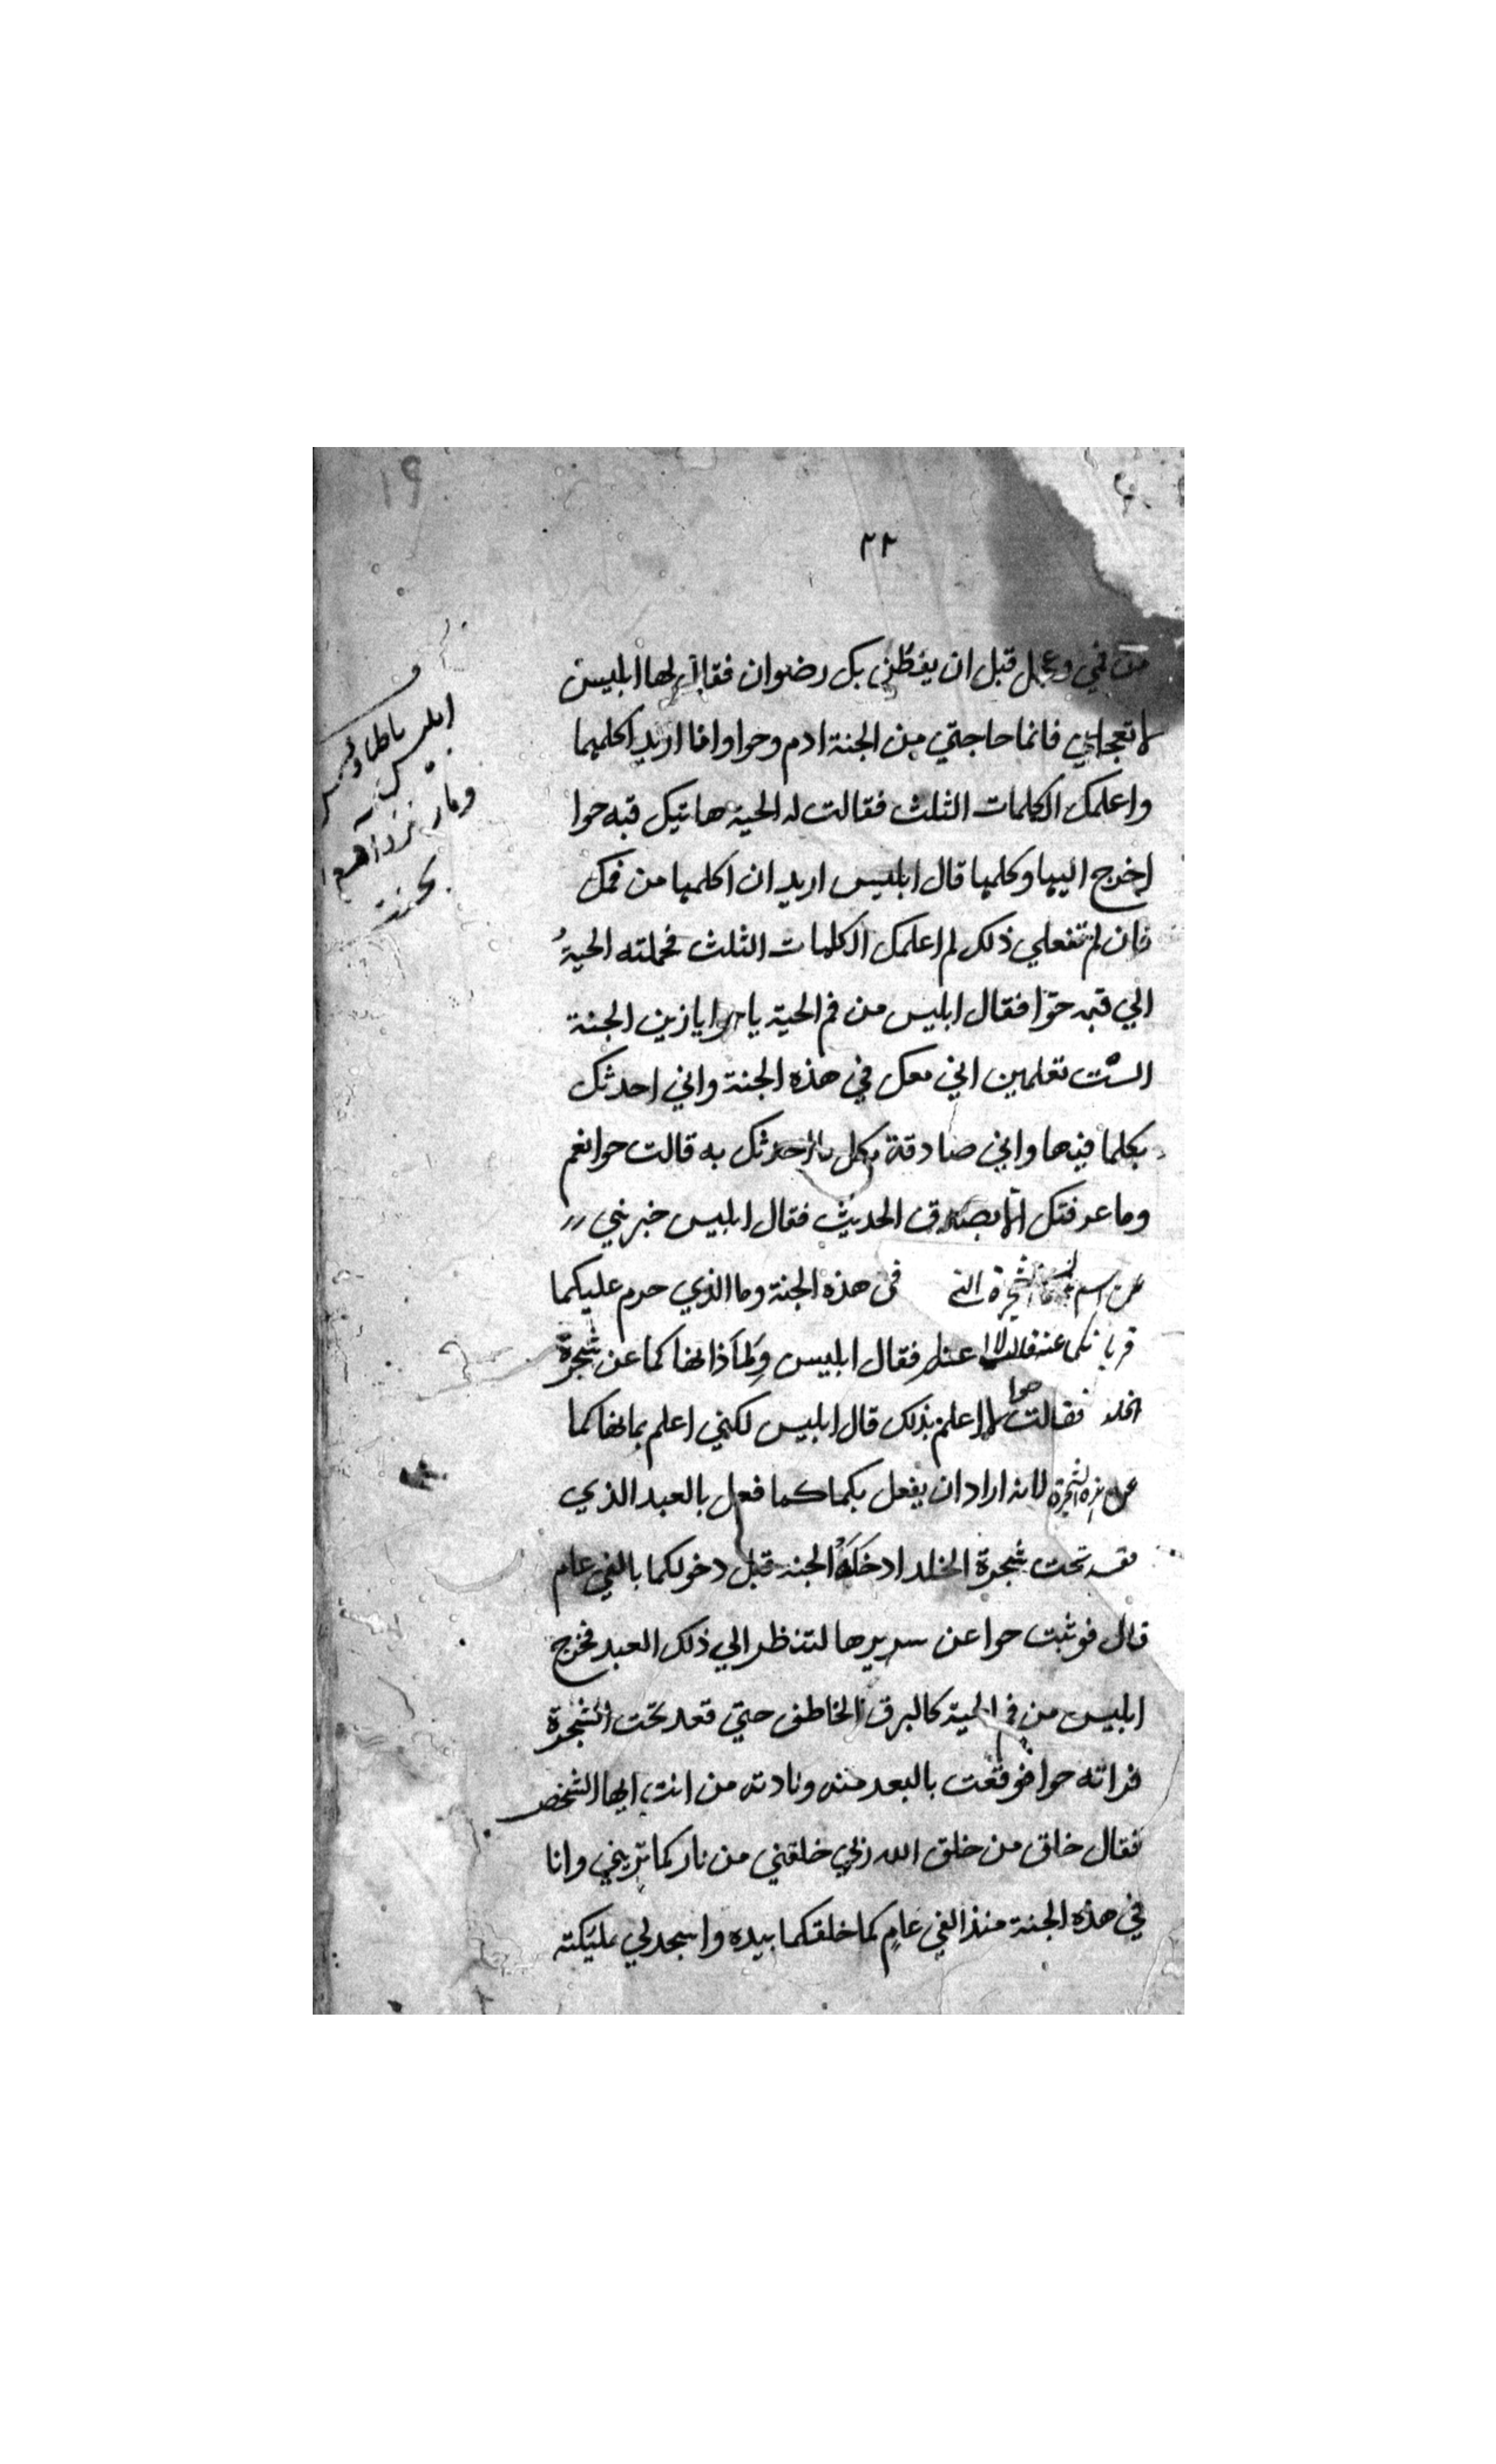 ١٩
٢٢
من في وعجل قبل ان يفطن بك رضوان فقال لها ابليس
لا تعجلي فانما حاجتي من الجنة ادم وحوا وانا اريد اكلمهما
واعلمك الكلمات الثلث فقالت له الحية هاتيك قبه حوا
اخرج اليها وكلمها قال ابليس اريد ان اكلمها من فمك
فان لم تفعلي ذلك لم اعلمك الكلمات الثلث فحملته الحية
الي قبه حوّا فقال ابليس من فم الحية يا حوا يا زين الجنة
الست تعلمين اني معك في هذه الجنة واني احدثك
بكلما فيها واني صادقة بكل ما احدثك به قالت حوا نعم
وما عرفتك الا بصدق الحديث فقال ابليس خبريني
عن اسم الشجرة التي في هذه الجنة وما الذي حرم عليكما
فقال ابليس ولماذا نهاكما عن شجرة
الخلد فقالت حوا لا اعلم بذلك قال ابليس لكنّي اعلم بما نهاكما
عن هذه الشجرة لانه اراد ان يفعل بكما كما فعل بالعبد الذي
تحت شجرة الخلد ادخله الجنه قبل دخولكما بالفي عام
قال فوثبت حوا عن سريرها لتنظر الي ذلك العبد فخرج
ابليس من في الحية كالبرق الخاطف حتي قعد تحت الشجرة
فراته حوا فوقعت بالبعد منه ونادته من انت ايها الشخص
فقال خلق من خلق الله ربي خلقني من نار كما تريني وانا
في هذه الجنة منذ الفي عام كما خلقكما بيده واسجد لي مليكته
ابليس باطاؤس
ومار نزد آدم